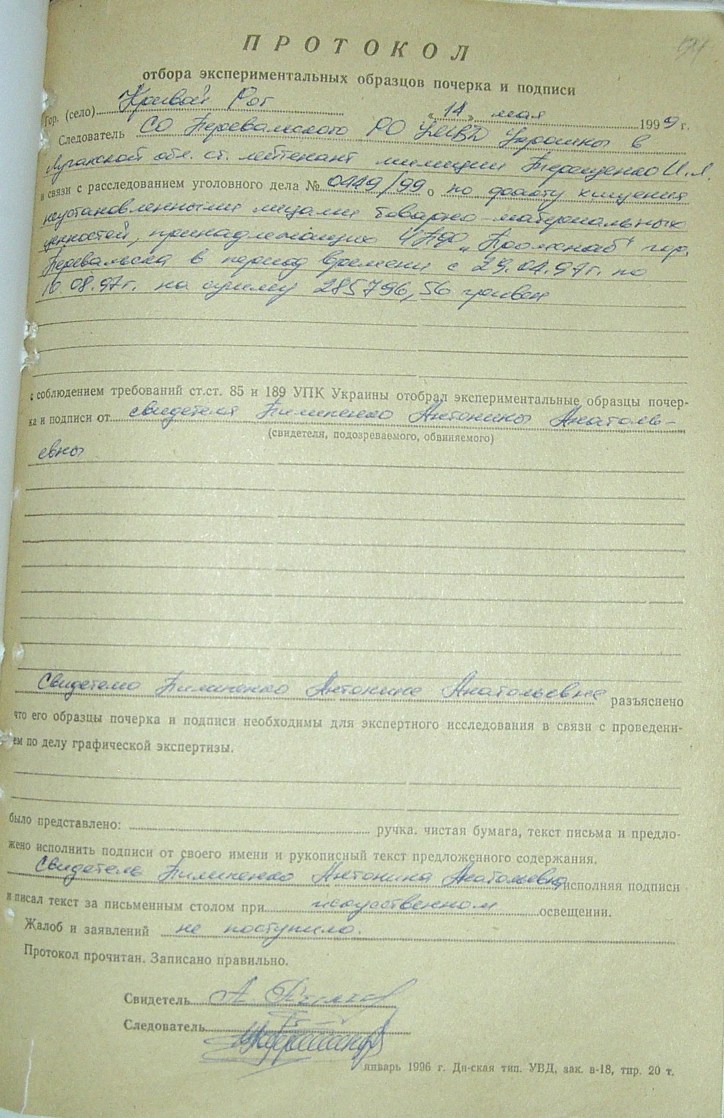 ПРОТОКОЛ
отбора экспериментальных образцов почерка и подписи
Гор. (село) Кривой Рог „14„ мая 1999 г.
Следователь СО Перевальского РО УМВД Украины в
Луганской обл. ст. лейтенант милиции Терещенко И.А.
в связи с расследованием уголовного дела № 0449/99 о по факту хищения
неустановленными лицами товарно-материальных
ценностей, принадлежащих ЧПФ гор.
Перевальска в период времени с 29.04.97г. по
10.08.97г. на сумму 285796,56 гривен
с соблюдением требований ст.ст. 85 и 189 УПК Украины отобрал экспериментальные образцы почер-
ка и подписи от свидетеля Пилипенко Антонины Анатоль-
(свидетеля, подозреваемого, обвиняемого)
евны
Свидетелю Пилипенко Антонине Анатольевне разъяснено
что его образцы почерка и подписи необходимы для экспертного исследования в связи с проведени-
ем по делу графической экспертизы.
было представлено: ручка. чистая бумага, текст письма и предло-
жено исполнить подписи от своего имени и рукописный текст предложенного содержания.
Свидетель Пилипенко Антонина Анатольевна исполняя подписи
и писал текст за письменным столом при искуственном освещении.
Жалоб и заявлений не поступило.
Протокол прочитан. Записано правильно.
Свидетель
Следователь
январь 1996 г. Дн-ская тип. УВД, зак. в-18, тир. 20 т.